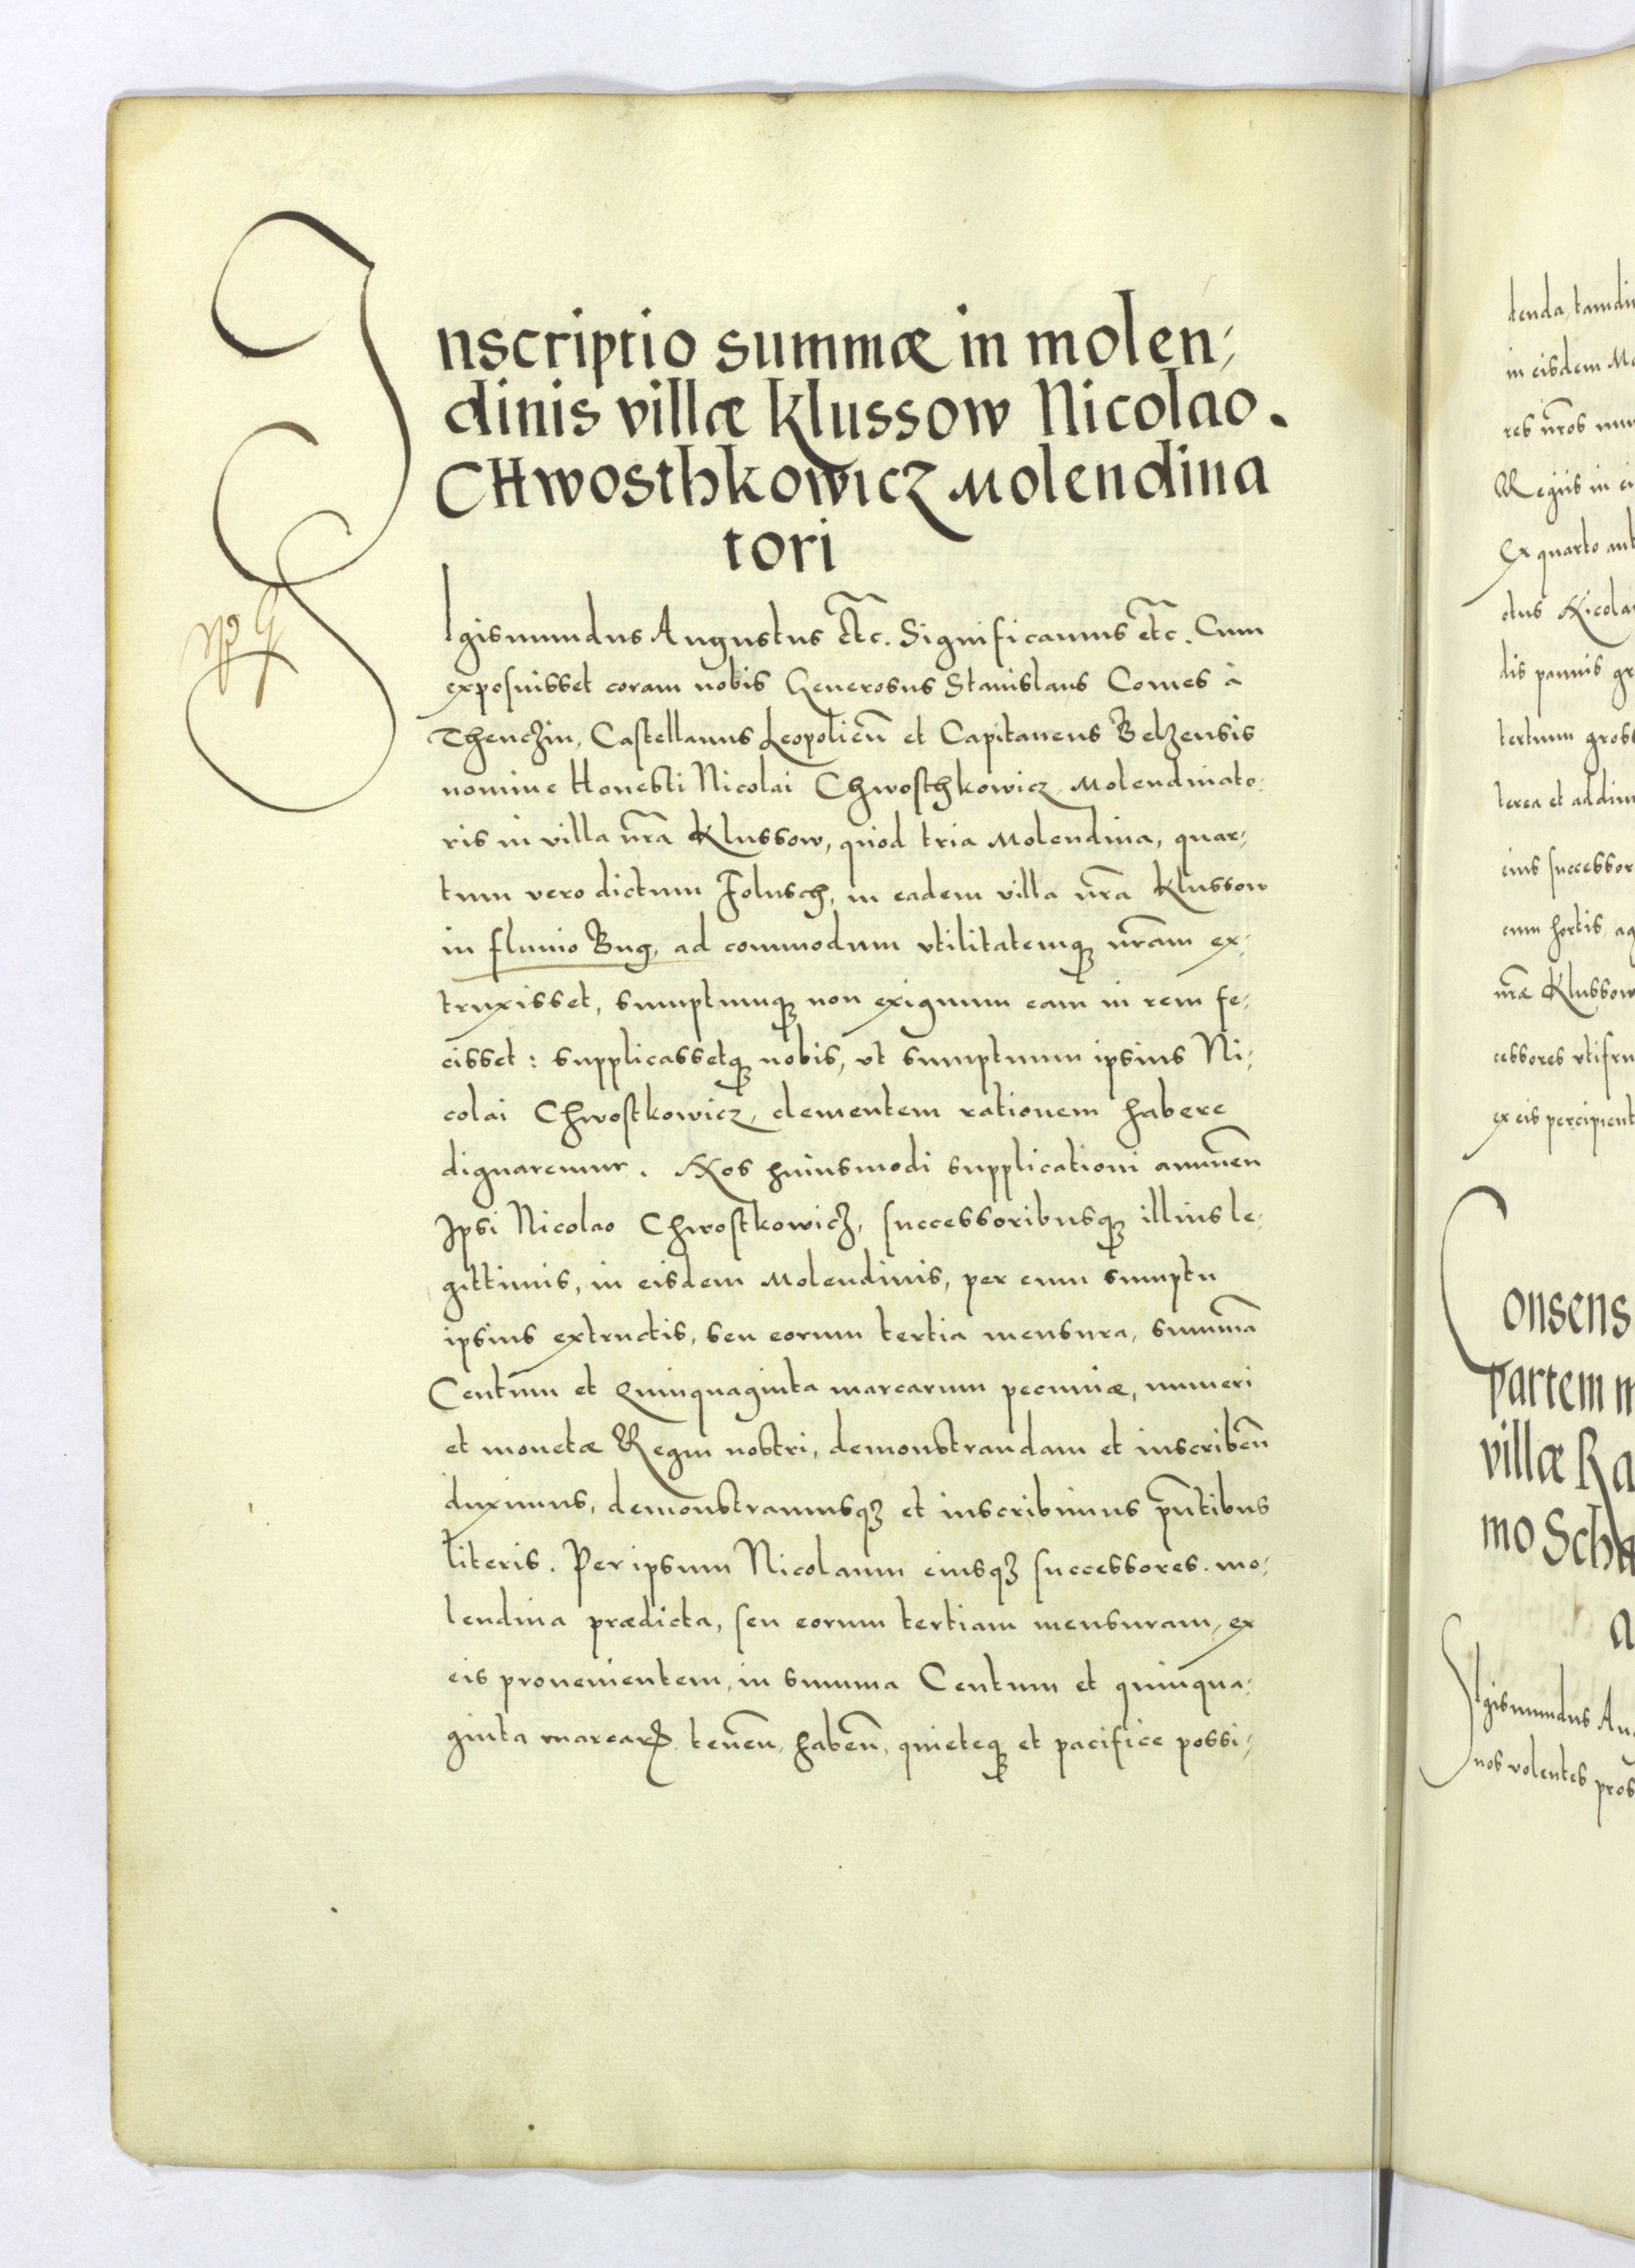 Inscriptio summæ in molen,
dinis villæ Klussow Nicolao.
CHwosthkowicz Molendina
tori
Sigismundus Augustus etc. Significamus etc. Cum
exposuisset coram nobis Generosus Stanislaus Comes à
Thenczin, Castellanus Leopolieñ et Capitaneus Belzensis
nomine Honesti Nicolai Chwosthkowicz, Molendinato,
ris in villa nr̃a Klussow, quod tria Molendina, quar,
tum vero dictum Folusch, in eadem villa nr̃a Klussow
in fluuio Bug, ad commodum vtilitatemqȝ nr̃am ex,
truxisset, sumptumqȝ non exiguum eam in rem fe,
cisset: supplicassetqȝ nobis, vt sumptuum ipsius Ni,
colai Chwostkowicz, clementem rationem habere
dignaremur. Nos huiusmodi supplicationi annueñ
Ipsi Nicolao Chwostkowicz, successoribusqȝ illius le,
gittimis, in eisdem Molendinis, per eum sumptu
ipsius extructis, seu eorum tertia mensura, summã
Centum et Quinquaginta marcarum pecuniæ, numeri
et monetæ Regni nostri, demonstrandam et inscribeñ
duximus, demonstramusqȝ et inscribimus pñtibus
literis. Per ipsum Nicolaum eiusqȝ successores. mo,
lendina prædicta, seu eorum tertiam mensuram, ex
eis prouenientem, in summa Centum et quinqua,
ginta marcarꝝ. teneñ, habeñ, quieteqȝ et pacifice possi,
tenda, tamdiu
in eisdem
res nr̃os
Regiis in
Ex quarto
ctus Nicola
dis pannis
tertium gross
terea et
eius successor
cum hortis,
nr̃æ Klussow
cessores vtifru
ex eis percipient
Consens
partem m
villæ Ra
mo Scha
a
Sigismundus Au
nos volentes pros